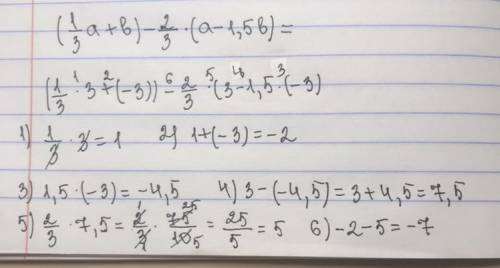 (1/3 a + b) - 2/3 · (a - 1,5b) =
1 2 6 5 4 3
(1/3 · 3 + (-3)) - 2/3 · (3 - 1,5 · (-3)
1) 1/3 · 3 = 1 2) 1 + (-3) = -2
3) 1,5 · (-3) = -4,5 4) 3 - (-4,5) = 3 + 4,5 = 7,5
5) 2/3 · 7,5 = 2/3 · 75/10 = 25/5 = 5 6) -2 - 5 = -7